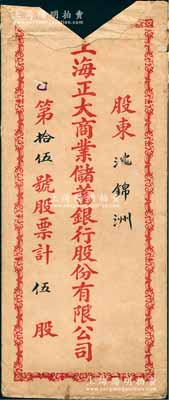 股東 沈錦洲
上海正大商業儲蓄銀行股份有限公司
第拾伍號股票計 伍 股